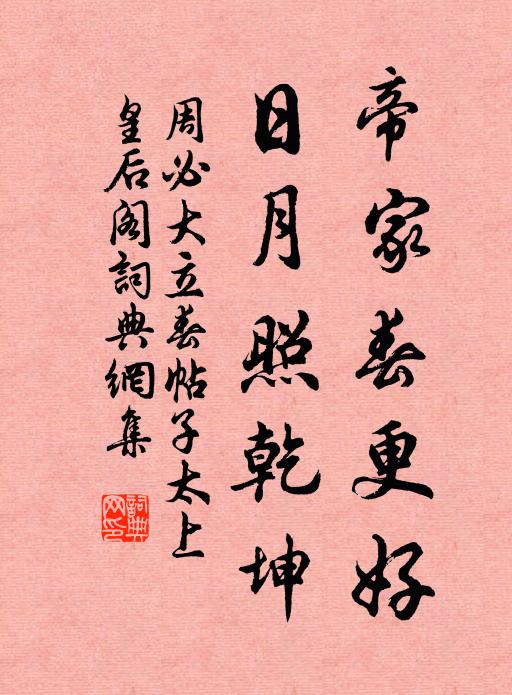 帝家春更好
日月照乾坤
周必大立春帖子太上
皇后阁詞典網集
詞典
网印